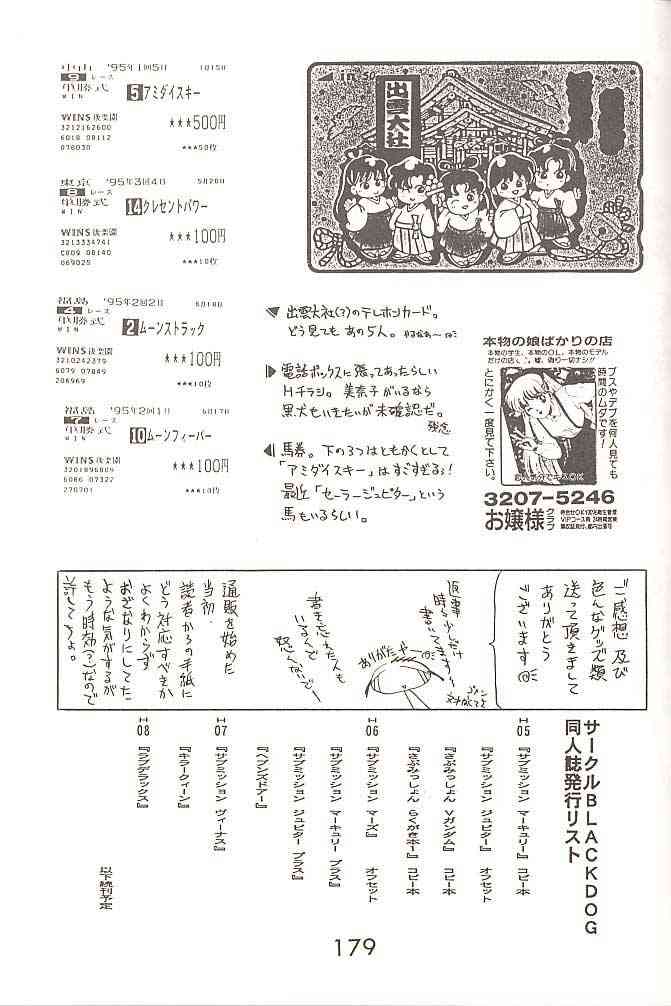 中山 '95年1回5日 1月15日
9 レース
単勝式
WIN
5 アミダイスキー
WINS後楽園
3212162600
6018 08112
076030
★★★500円
★★★50枚
東京 '95年3回4日 5月28日
8 レース
単勝式
WIN
14 クレセントパワー
WINS後楽園
3213334741
C809 08140
069025
★★★100円
★★★10枚
福島 '95年2回2日 6月18日
4 レース
単勝式
WIN
2 ムーンストラック
WINS後楽園
3210242379
6079 07849
206969
★★★100円
★★★10枚
福島 '95年2回1日 6月17日
7 レース
単勝式
WIN
10 ムーンフィーバー
WINS後楽園
3201896809
6086 07322
270701
★★★100円
★★★10枚
50
出雲大社
出雲大社(?)のテレホンカード。
どう見てもあの5人。
電話ボックスに張ってあったらしい
Hチラシ。美奈子がいるなら
黒犬もいきたいが未確認だ。
残念
馬券。下の3つはともかくとして
「アミダイスキー」はすごすぎる!
最近「セーラージュピター」という
馬もいるらしい。
本物の娘ばかりの店
本物の学生、本物のOL、本物のモデル
だけの店で、嘘、偽り一切ナシ!!
ブスやデブを何人見ても
時間のムダです!
とにかく一度見て下さい。
3207-5246
お嬢様クラブ
ご感想 及び
色んなグッズ類
送って頂きまして
ありがとう
ございます
返事
時々少しだけ
書いてますが
ありがたや〜
書き忘れた人も
いるくど
怒んないで〜
通販を始めた
当初、
読者からの手紙に
どう対応すべきか
よくわからず
おざなりにしてた
ような気がするが
もう時効(?)なので
許してちょ。
サークルBLACKDOG
同人誌発行リスト
H05 『サブミッション マーキュリー』 コピー本
『サブミッション ジュピター』 オフセット
『さぶみっしょん Vガンダム』 コピー本
『さぶみっしょん らくがきホー』 コピー本
H06 『サブミッション マーズ』 オフセット
『サブミッション マーキュリー プラス』
『サブミッション ジュピター プラス』
『ヘブンズドアー』
H07 『サブミッション ヴィーナス』
『キラークィーン』
H08 『ラブデラックス』
以下続刊予定
179